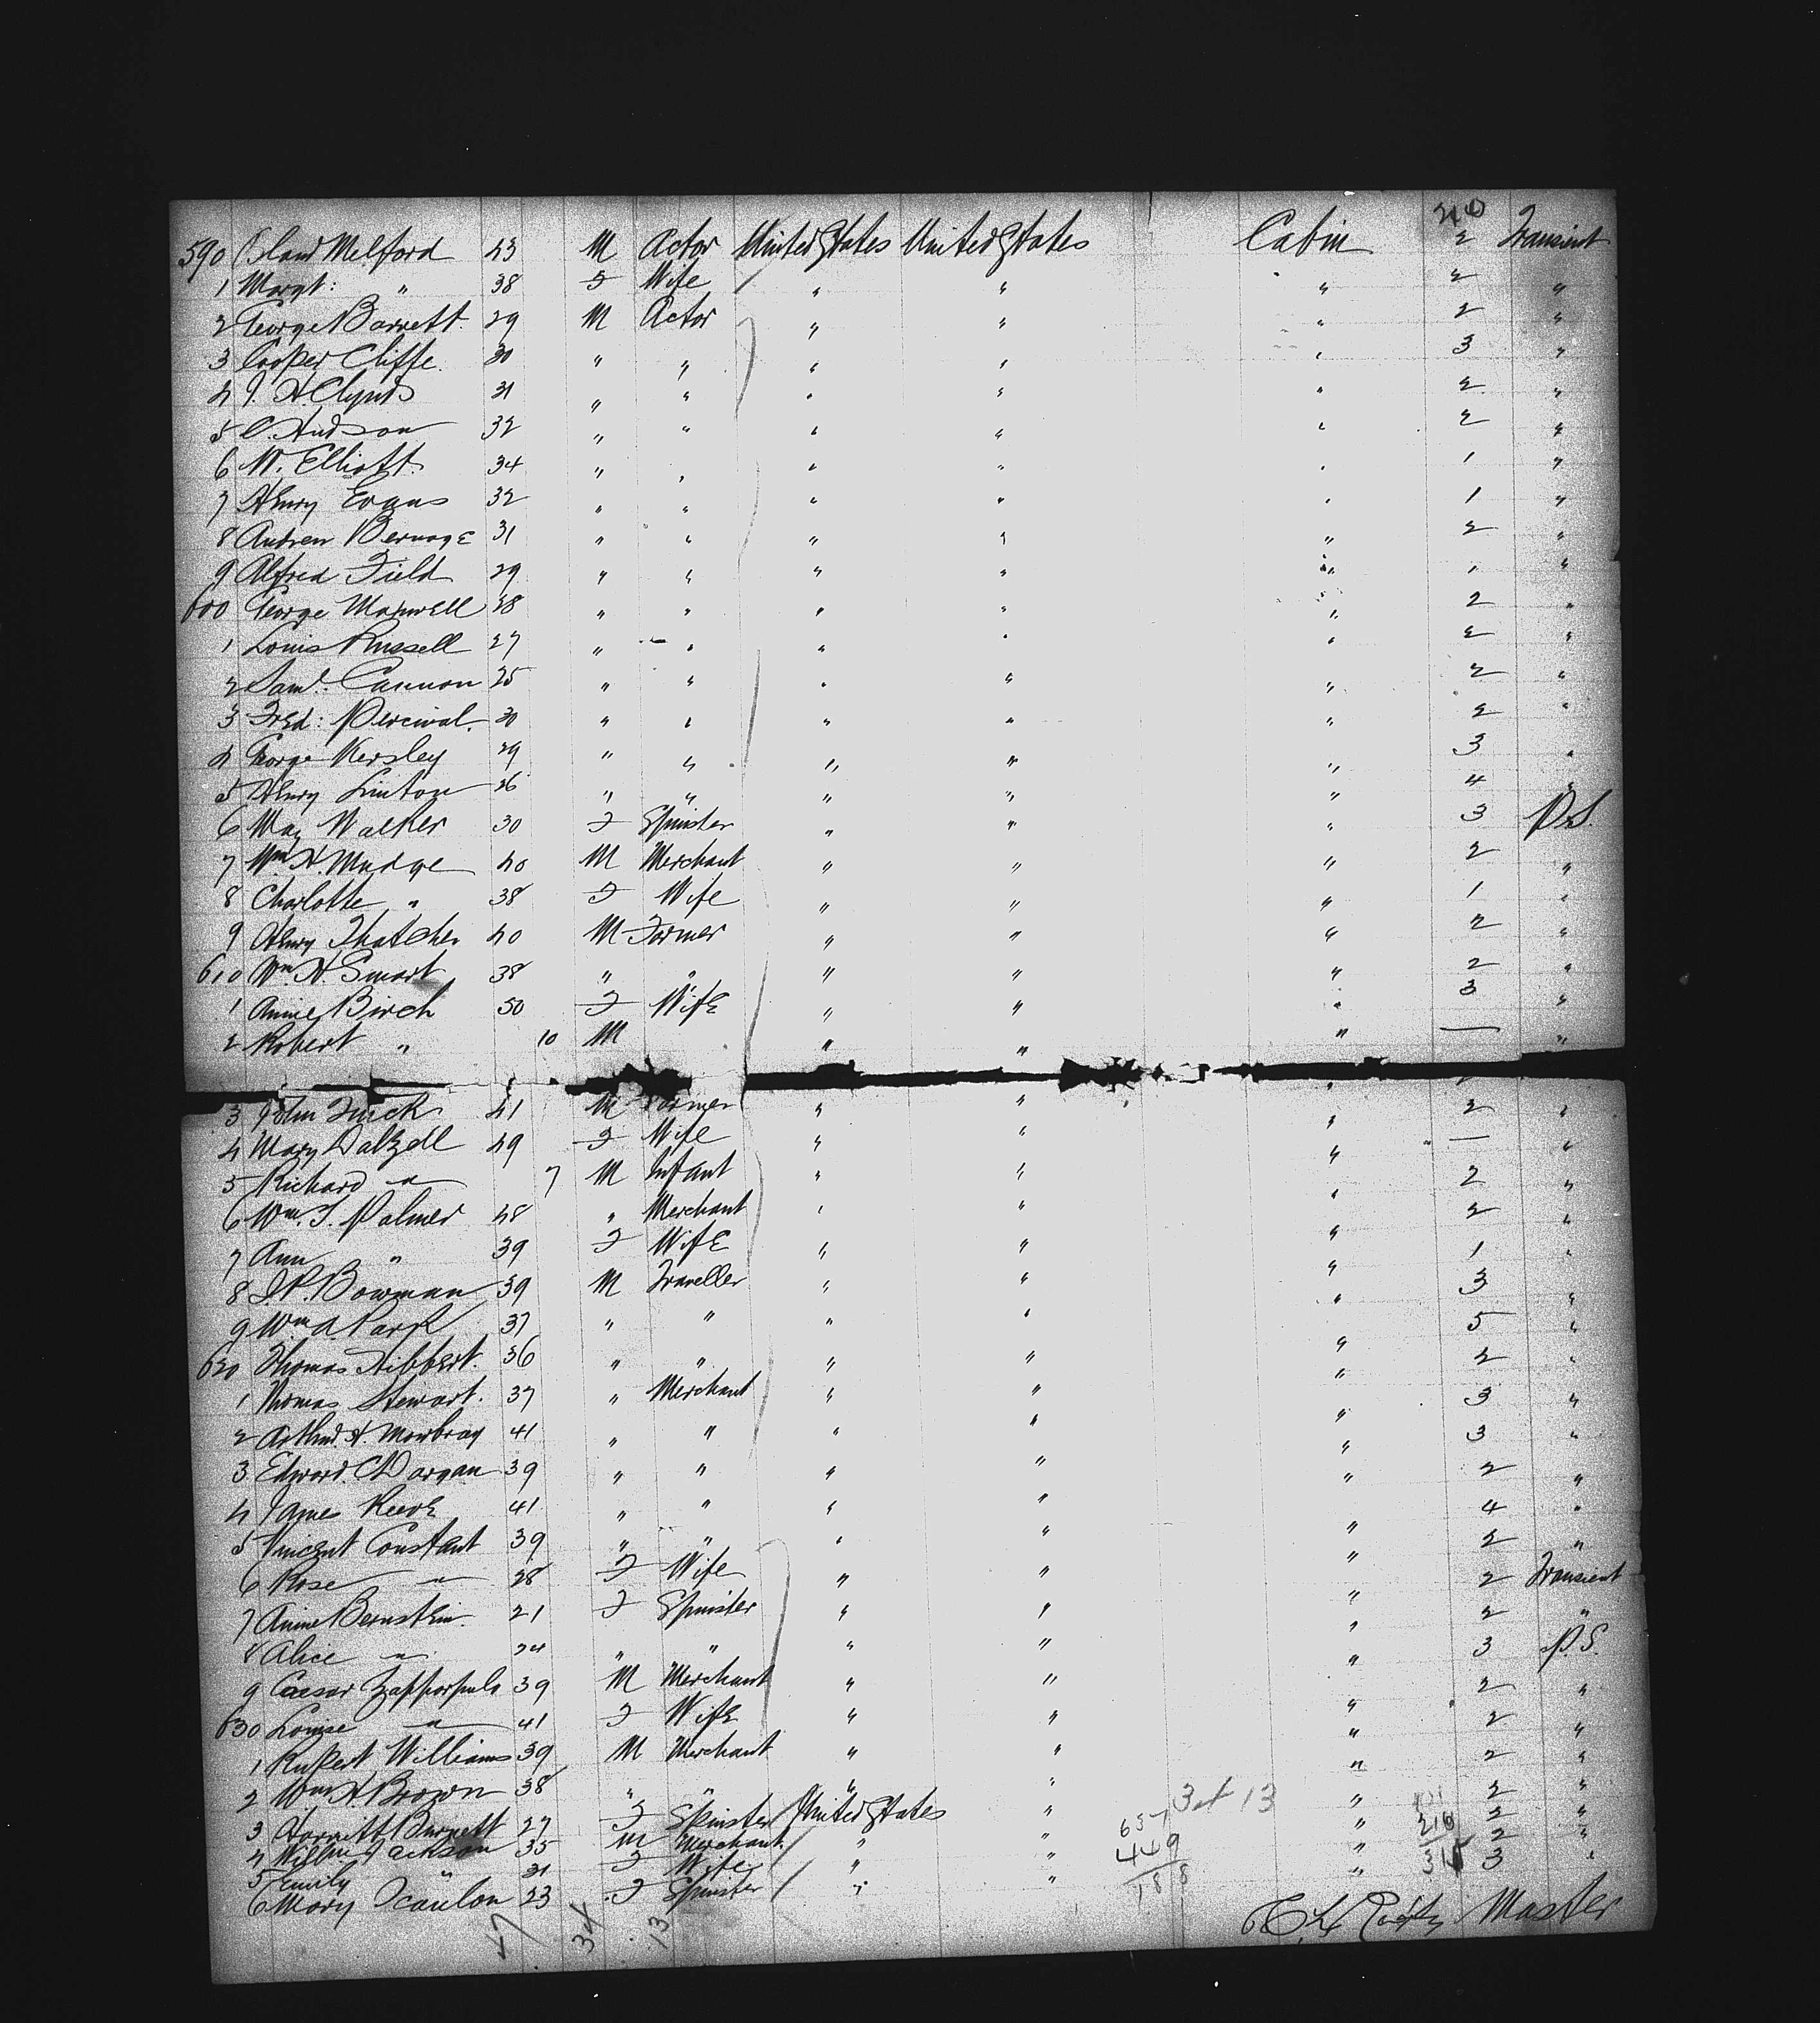 210
590 Melford 43 M Actor United States United States Cabin 2 Transient
1 Margt: " 38 F Wife " " " 2 "
2 George Barrett. 29 M Actor " " " 2 "
3 Cooper Cliffe. 30 " " " " " 3 "
4 J. H. Clynds 31 " " " " " 2 "
5 C. Hudson 32 " " " " " 2 "
6 W. Elliott. 34 " " " " " 1 "
7 Henry Evans 32 " " " " " 1 "
8 Andrew 31 " " " " " 2 "
9 Alfred Field 29 " " " " " 1 "
600 George Maxwell 28 " " " " " 2 "
1 Louis Russell 27 " " " " " 2 "
2 Saml. Cannon 25 " " " " " 2 "
3 Fred: Percival. 30 " " " " " 2 "
4 George Kersley 29 " " " " " 3 "
5 Henry Linton 26 " " " " " 4 "
6 May Walker 30 F Spinster " " " 3 P.S.
7 Wm. H. Mudge 40 M Merchant " " " 2 "
8 Charlotte " 38 F Wife " " " 1 "
9 Henry Thatcher 40 M Farmer " " " 2 "
610 Wm. H. Smart 38 " " " " " 2 "
1 Annie Birch 50 F Wife " " " 3 "
2 Robert " 10 M " " " — "
3 John 41 M Farmer " " " 2 "
4 Mary Dalzell 49 F Wife " " " — "
5 Richard " 7 M Infant " " " 2 "
6 Wm. T. Palmer 48 " Merchant " " " 2 "
7 Ann " 39 F Wife " " " 1 "
8 J.P. Bowman 39 M Traveller " " " 3 "
9 Wm. A. Park 37 " " " " " 5 "
620 Thomas Hibbert. 36 " " " " " 2 "
1 Thomas Stewart. 37 " Merchant " " " 3 "
2 Arthur. H. Mowbray 41 " " " " " 3 "
3 Edward. C. Dargan 39 " " " " " 2 "
4 James Reeve 41 " " " " " 4 "
5 Vincent Constant 39 " " " " " 2 "
6 Rose " 28 F Wife " " " 2 Transient
7 Annie Bernstein. 21 F Spinster " " " 2 "
8 Alice " 24 " " " " " 3 P.S.
9 Caesar 39 M Merchant " " " 2 "
630 Louise " 41 F Wife " " " 2 "
1 Rupert Williams 39 M Merchant " " " 2 "
2 Wm. H. Brown 38 " " " " " 2 "
3 Harriett Burnett 27 F Spinster United States " " 2 "
4 Jackson 35 M Merchant. " " " 2 "
5 Emily " 31 F Wife " " " 3 "
6 Mary Scanlon 23 F Spinster "
34 13
637
449
188
210
47 34 13
Master